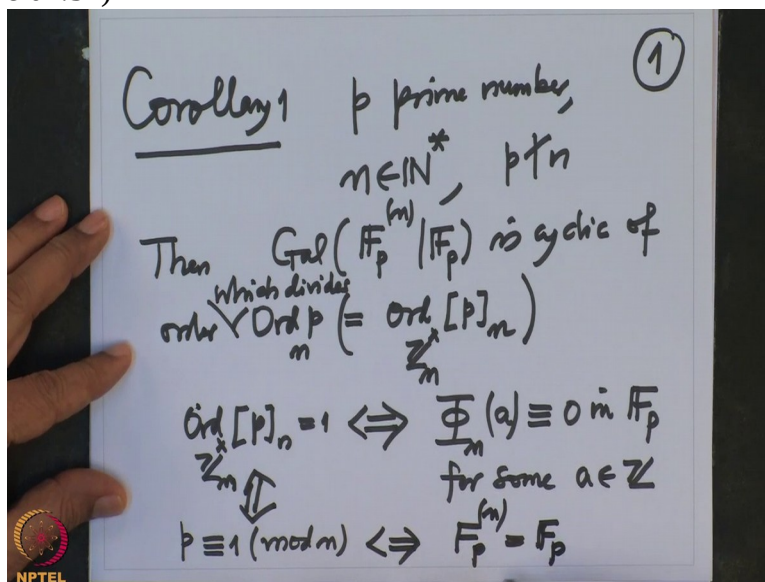 ①
Corollary 1 p prime number,
n ∈ ℕ*, p ∤ n
Then Gal(𝔽_p^(n) | 𝔽_p) is cyclic of
which divides
order ∨ Ord_n p (= ord_{ℤ_n^×} [p]_n)
Ord_{ℤ_n^×} [p]_n = 1 ⟺ Φ_n(a) ≡ 0 in 𝔽_p
for some a ∈ ℤ
⇕
p ≡ 1 (mod n) ⟺ F_p^(n) = 𝔽_p
NPTEL